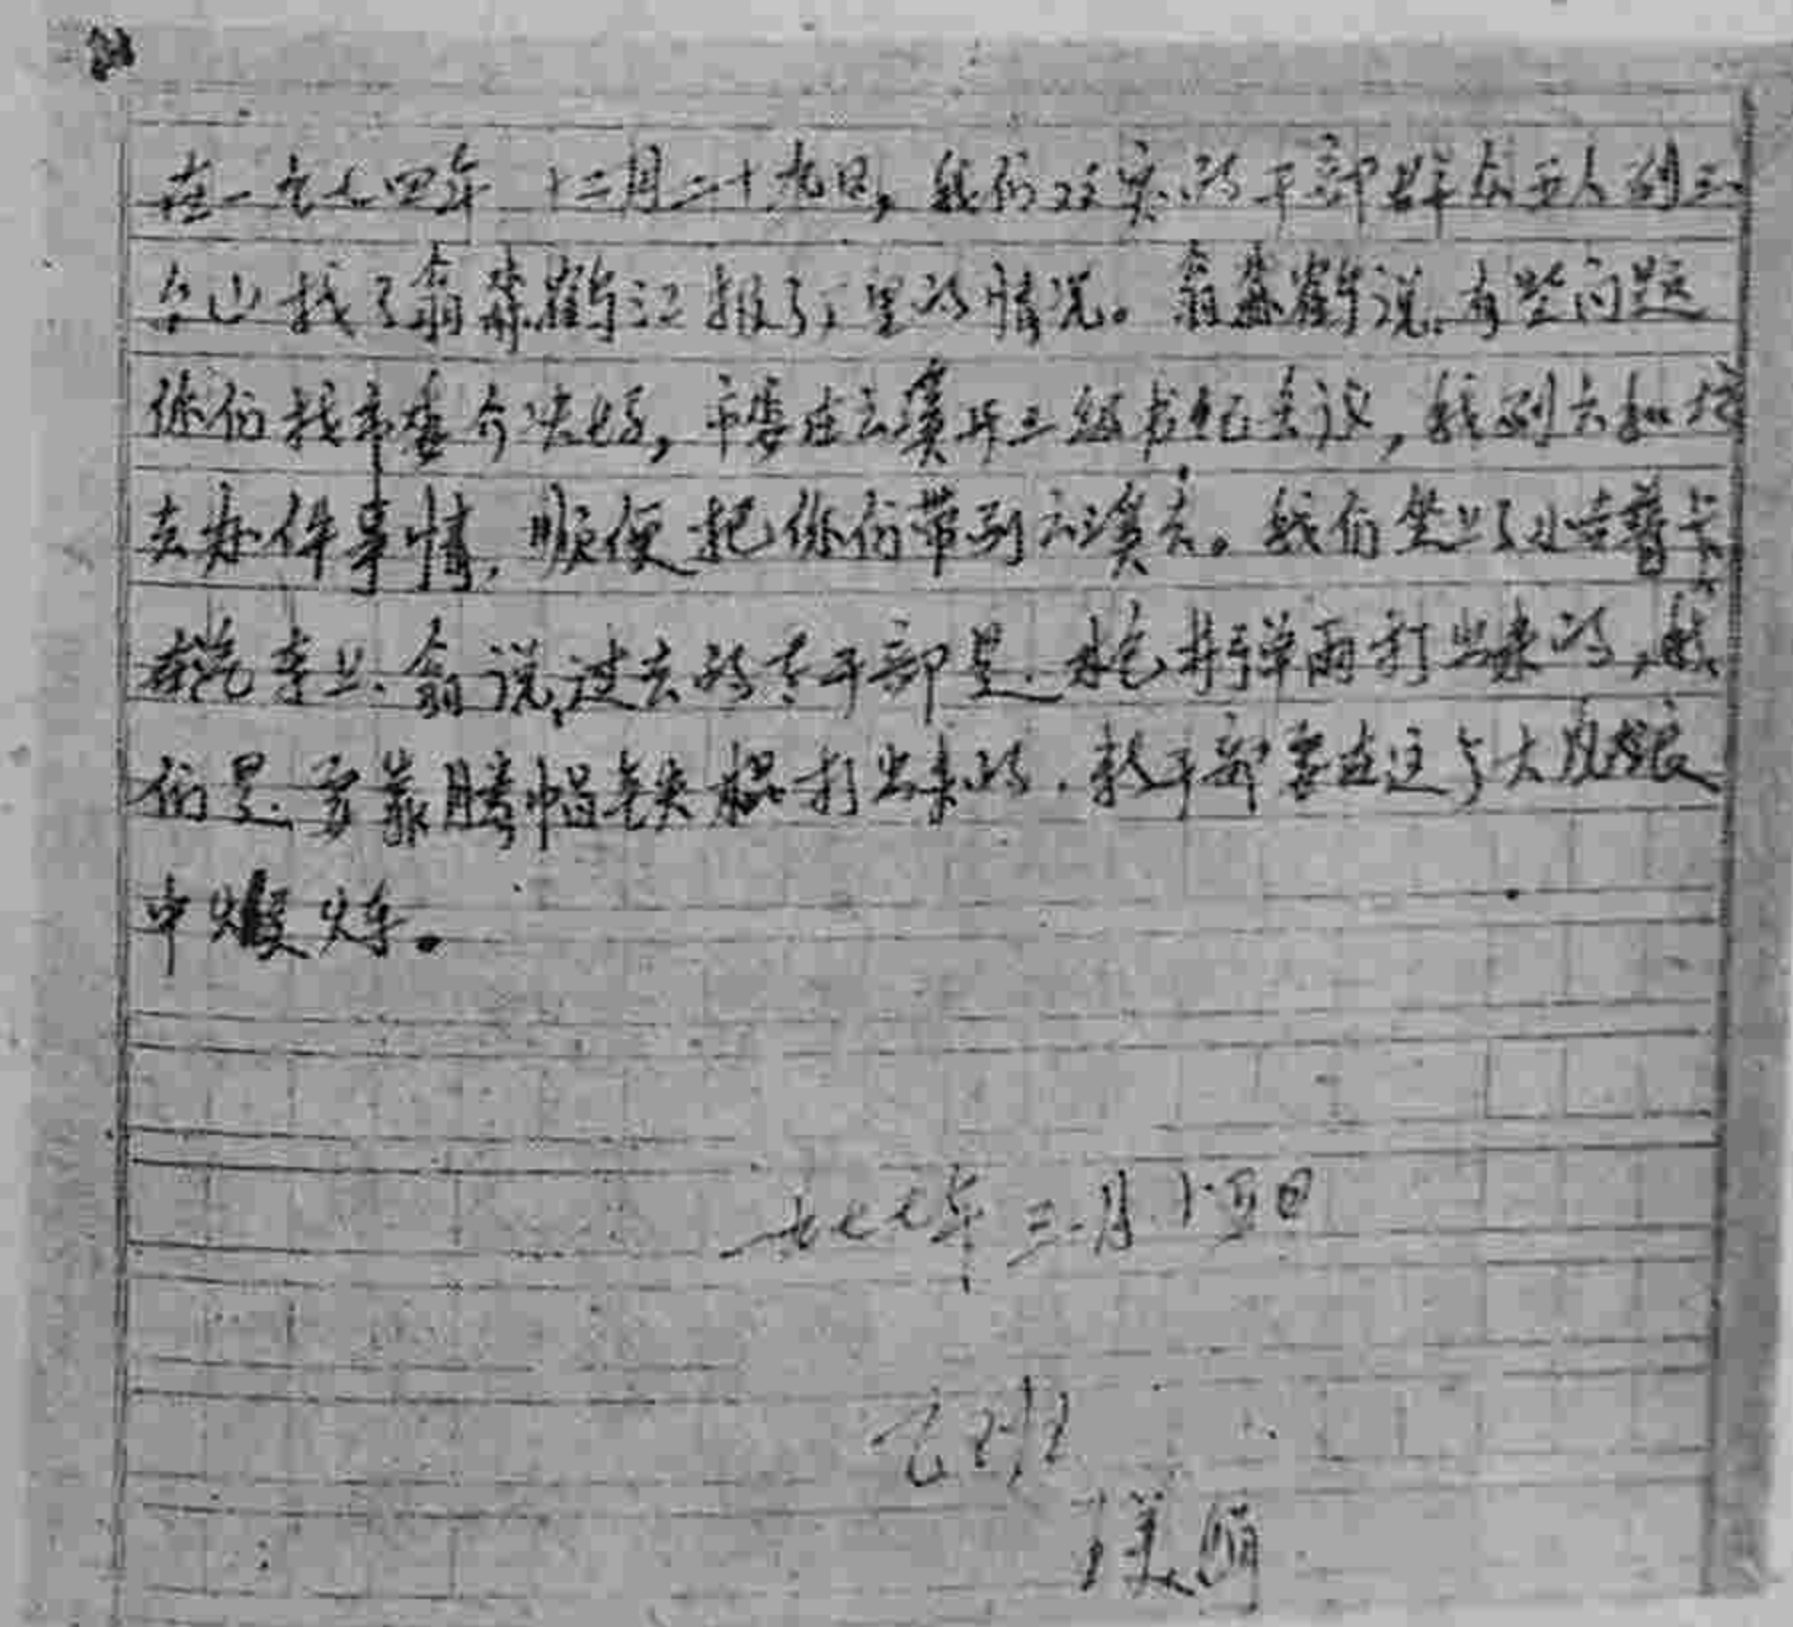 在一九七四年 十二月二十九日,我们双突的干部群众五人到三
台山找了翁森鹤汇报了厂里的情况。翁森鹤说,有些问题
你们找市委介决好,市委在云溪开三级书记会议,我到六和塔
去办件事情,顺便把你们带到云溪去。我们坐上了北京普卡
在汽车上,翁说,过去的老干部是,枪林弹雨打出来的,我
们是,要靠藤帽铁棍打出来的,新干部要在这与大风浪
中煅炼。
一九七七年三月十五日
乙班
美娟